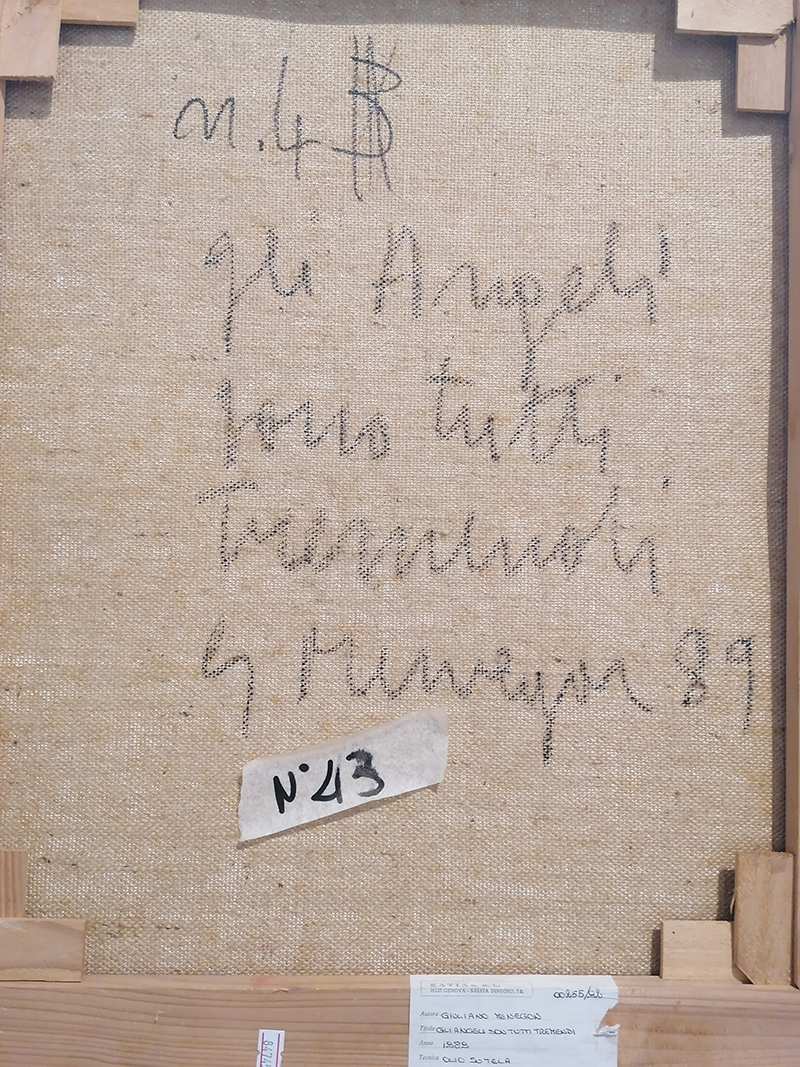 n.4
gli Angeli
sono tutti
Tremendi
G Menegon 89
N°43
16125 GENOVA - SALITA DINEGRO, 7R.
Autore GIULIANO MENEGON
Titolo GLI ANGELI SON TUTTI TREMENDI
Anno 1989
Tecnica OLIO SU TELA